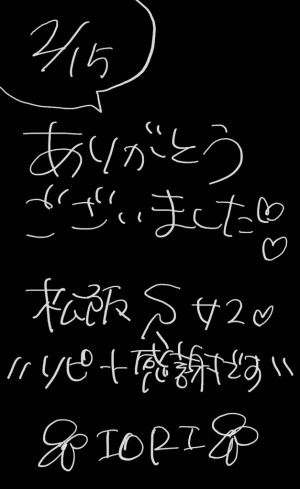 2/15
ありがとう
ございました♡♡
松阪 S 女2♡
"リピ十感謝です"
IORI